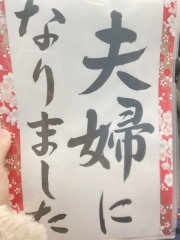 夫婦に
なりました